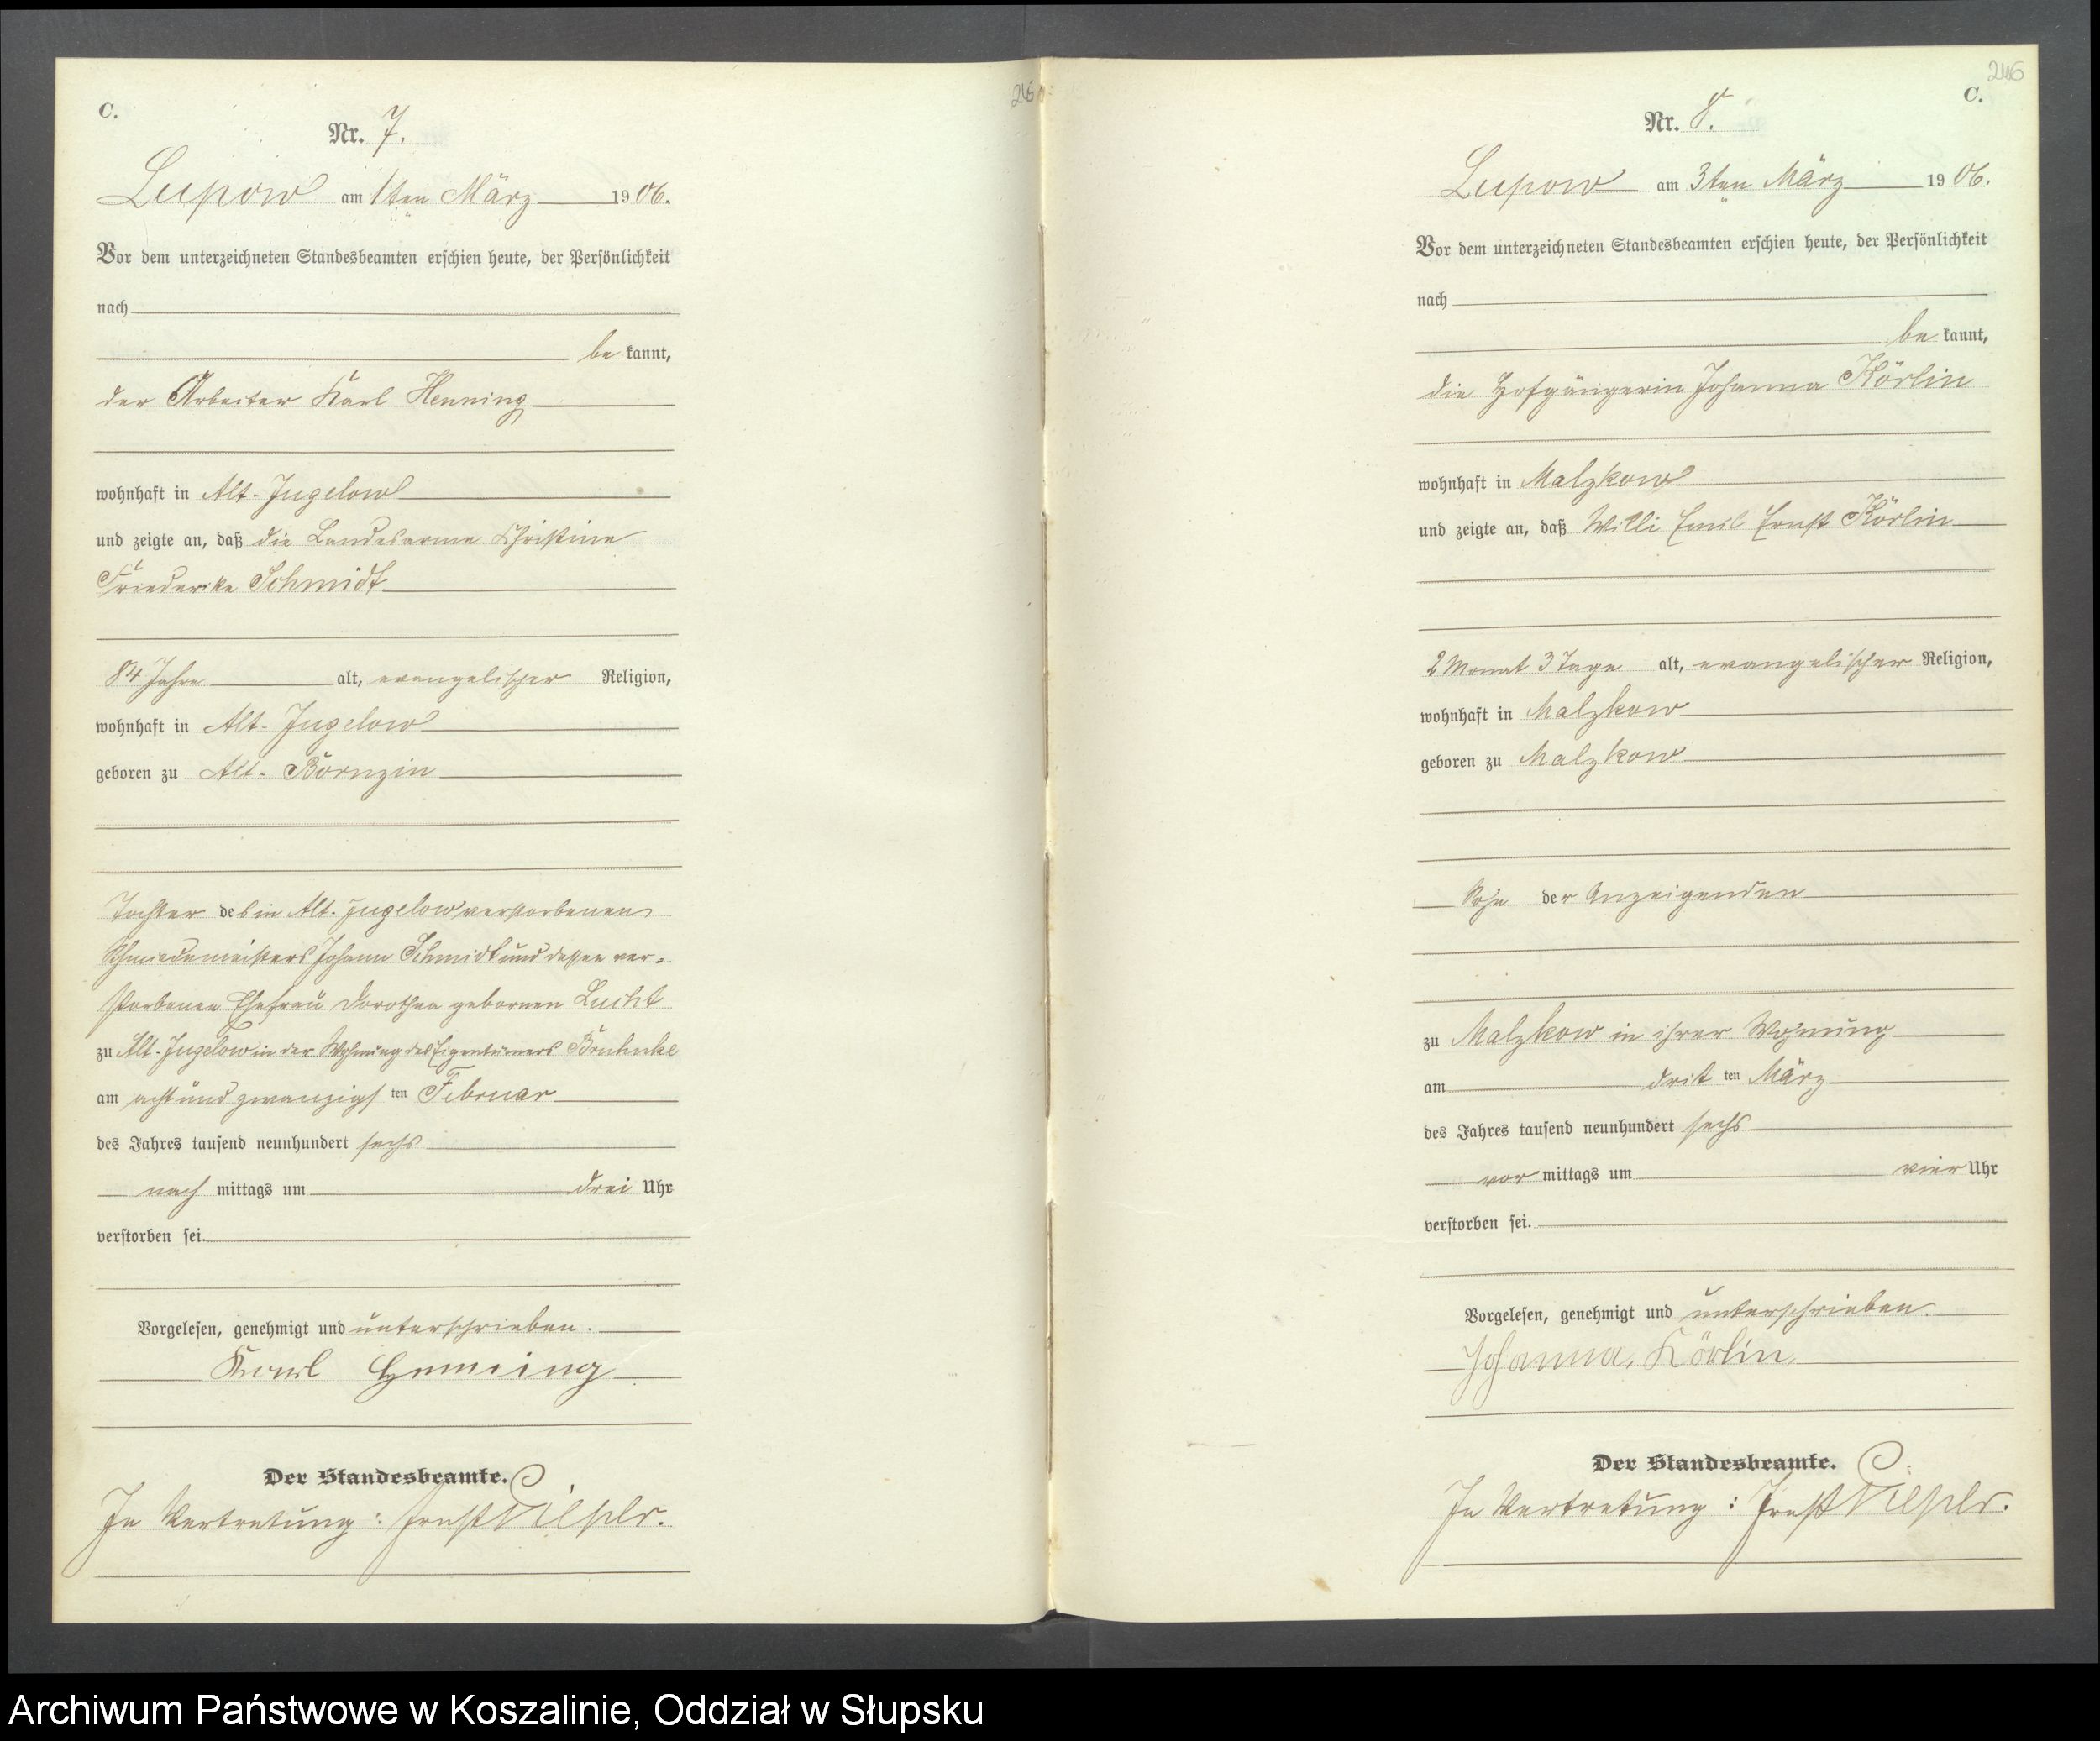 C.
Nr. 7.
Lupow am 1ten März 1906.
Vor dem unterzeichneten Standesbeamten erschien heute, der Persönlichkeit
nach
be kannt,
der Arbeiter Karl Henning
wohnhaft in Alt-Jugelow
und zeigte an, daß die Landesarme Christine
Friederike Schmidt
84 Jahre alt, evangelischer Religion,
wohnhaft in Alt-Jugelow
geboren zu Alt-Börnzin
Tochter des in Alt-Jugelow verstorbenen
Schmiedemeisters Johann Schmidt und dessen ver-
storbenen Ehefrau Dorothea gebornen Lucht
zu Alt-Jugelow in der Wohnung des Eigentümers
am acht und zwanzigs ten Februar
des Jahres tausend neunhundert sechs
nach mittags um drei Uhr
verstorben sei.
Vorgelesen, genehmigt und unterschrieben.
Karl Henning
Der Standesbeamte.
In Vertretung: Ernst
246
C.
Nr. 8.
Lupow am 3ten März 1906.
Vor dem unterzeichneten Standesbeamten erschien heute, der Persönlichkeit
nach
be kannt,
die Hofgängerin Johanna Körlin
wohnhaft in Malzkow
und zeigte an, daß Willi Emil Ernst Körlin
2 Monat 3 Tage alt, evangelischer Religion,
wohnhaft in Malzkow
geboren zu Malzkow
Sohn der Anzeigenden
zu Malzkow in ihrer Wohnung
am drit ten März
des Jahres tausend neunhundert sechs
vor mittags um vier Uhr
verstorben sei.
Vorgelesen, genehmigt und unterschrieben.
Johanna Körlin
Der Standesbeamte.
In Vertretung: Ernst
Archiwum Państwowe w Koszalinie, Oddział w Słupsku